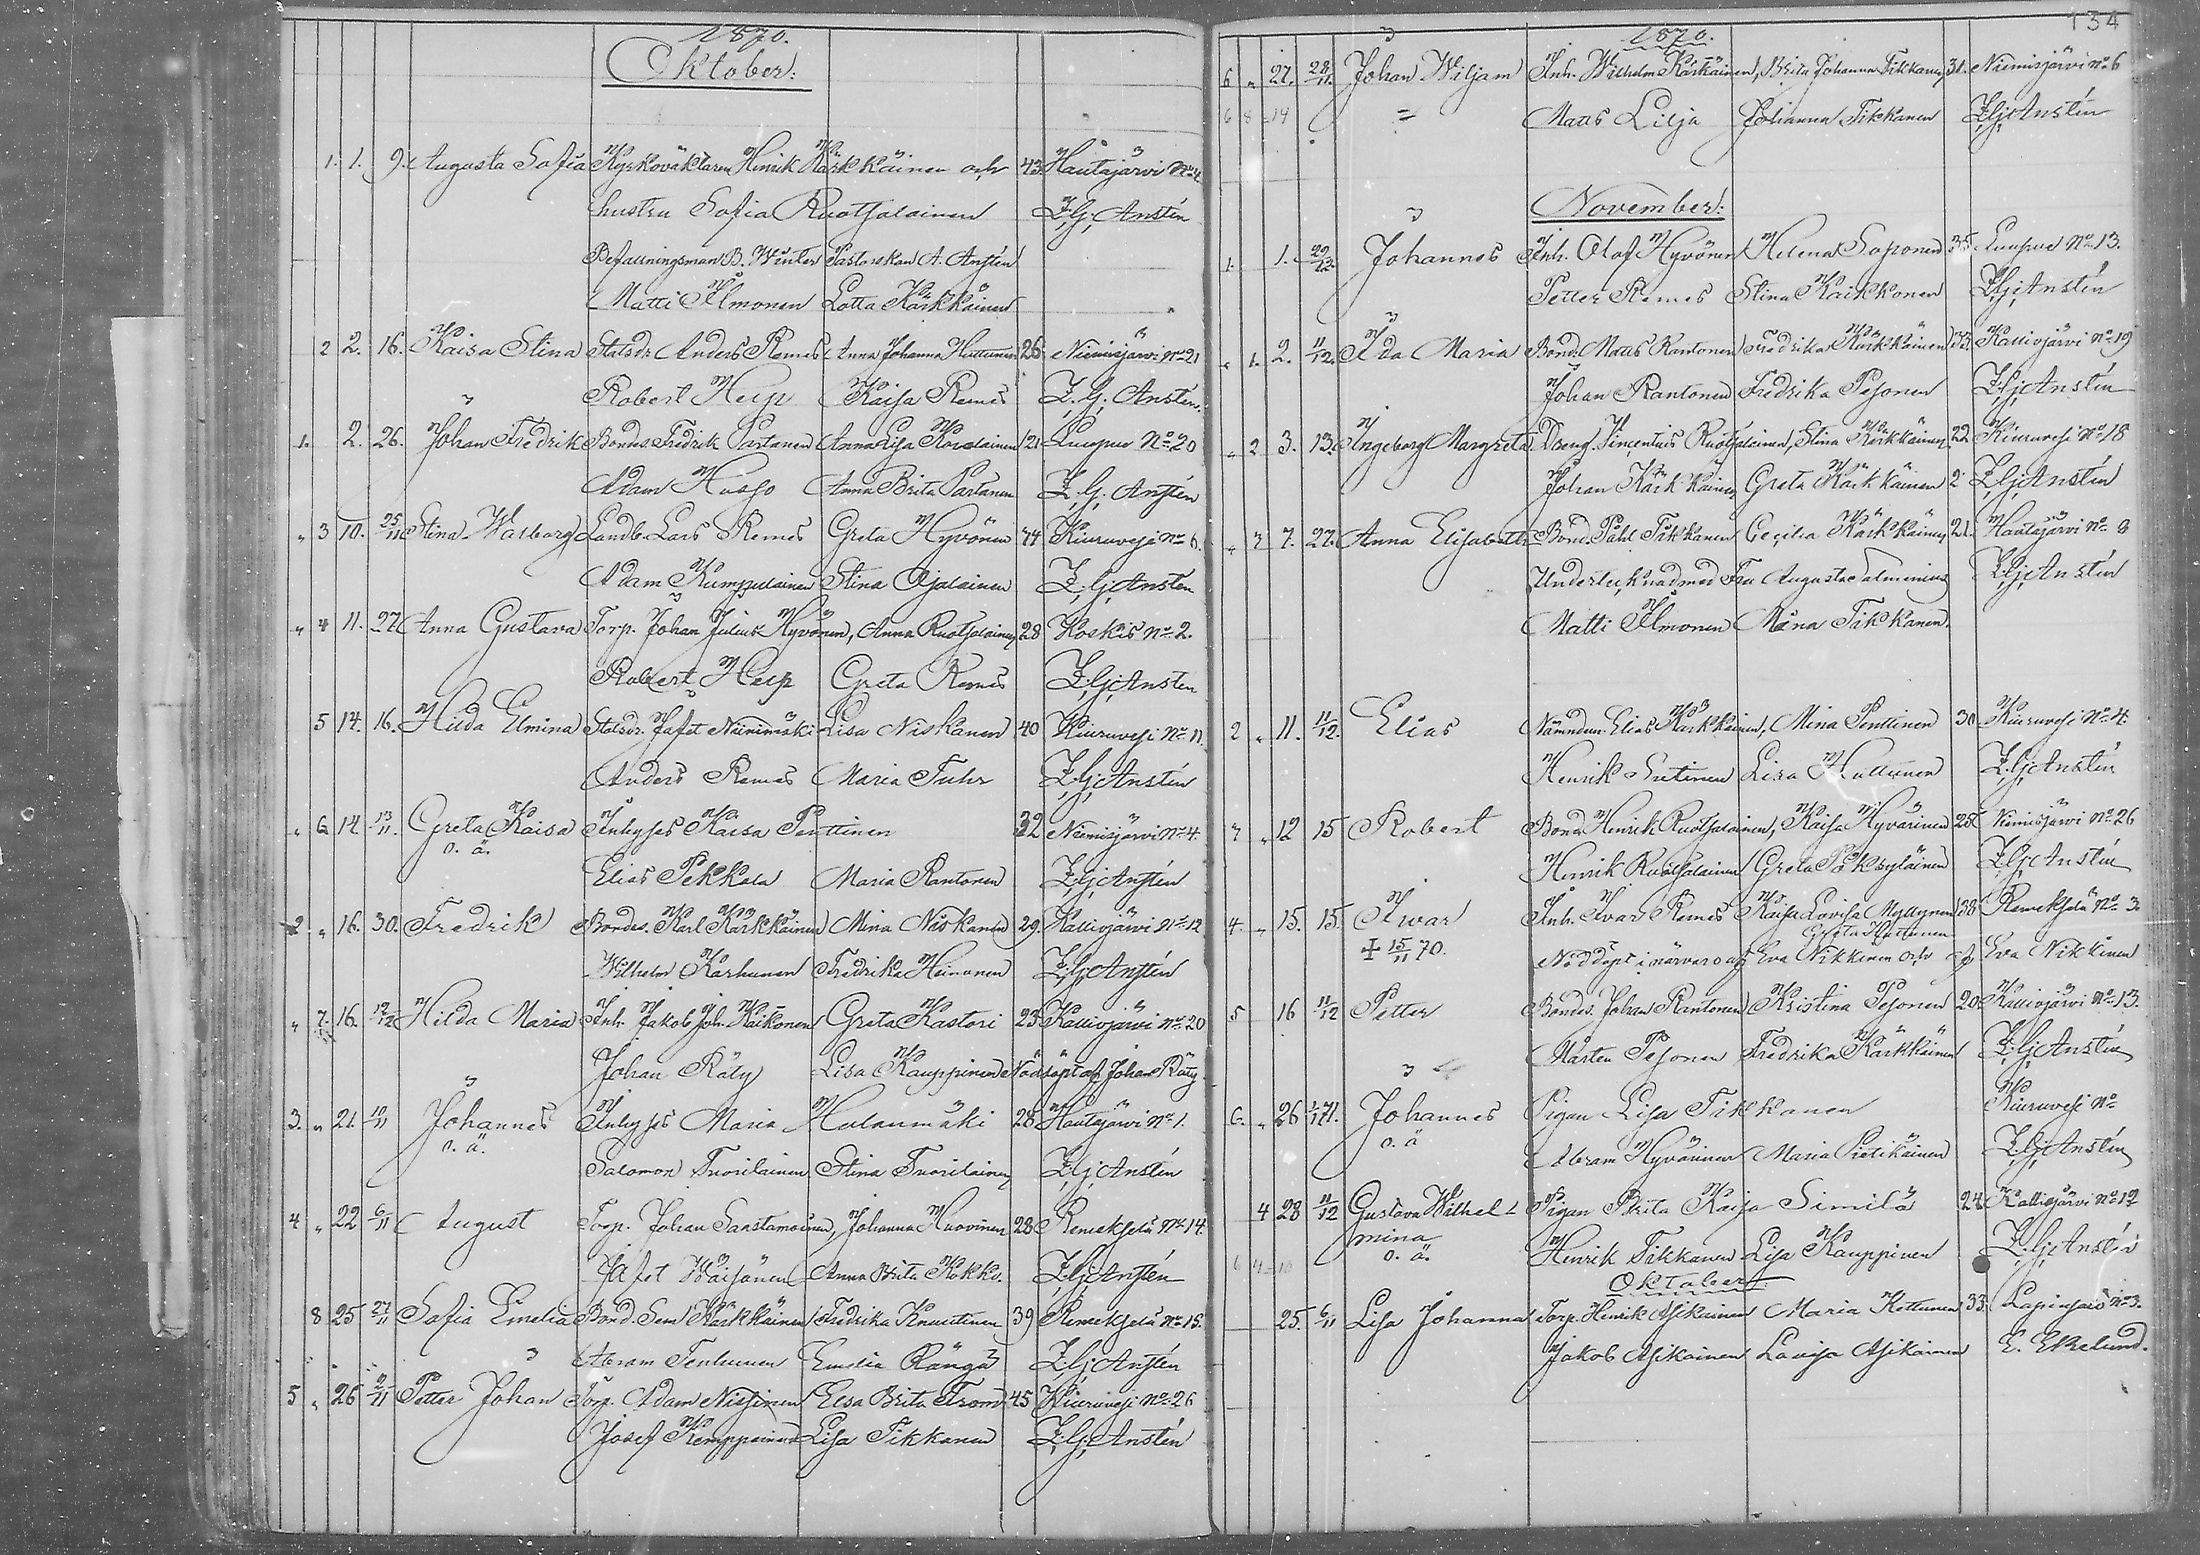 1870.
Oktober:
1. 1. 9. Augusta Sofia Kyrkoväktaren Henrik Kärkkäinen och 43 Hautajärvi No 4.
hustru Sofia Ruotsalainen Z. Gj. Anstén
Befallningsman B. Winter Pastorskan A. Anstén
Matti Ilmonen Lotta Kärkkäinen
2 2. 16. Kaisa Stina Statsdr Anders Remes Anna Johanna Huttunen 26 Niemisjärvi No 21
Robert Heip Kaisa Remes Z. Gj. Anstén.
1. 2. 26. Johan Fredrik Bondes. Fredrik Partanen Anna Lisa 21 Luupue No 20
Adam Husso Anna Brita Partanen Z. Gj. Anstén
" 3 10. 25/11 Stina Walborg Landb. Lars Remes Greta Hyvönen 44 Kiuruvesi No 6.
Adam Kumpulainen Stina Ojalainen Z. Gj. Anstén
" 4 11. 27. Anna Gustava Torp. Johan Julius Hyvönen, Anna Ruotsalainen 28 Koskis No 2.
Robert Heip Greta Remes Z. Gj. Anstén
5 14. 16. Hilda Elmina Statsdr. Jafet Niinimäki Lisa Niskanen 40 Kiuruvesi No 11.
Anders Remes Maria Fuhr Z. Gj. Anstén
" 6 14. 13/11. Greta Kaisa Inhyses Kaisa Penttinen 32 Niemisjärvi No 4.
o. ä.
Elias Pekkala Maria Rantonen Z. Gj. Anstén
2. " 16. 30. Fredrik Bondes. Karl Kärkkäinen Mina Niskanen 29. Kalliojärvi No 12
Wilhelm Karhunen Fredrika Heinonen Z. Gj. Anstén
" 7. 16. 12/12 Hilda Maria Inh. Jakob Joh. Kaikonen Greta Kastari 23 Kalliojärvi No 20
Johan Räty Lisa Kauppinen Nöddöpt af Johan Räty
3. " 21. 10/11 Johannes Inhyses Maria Halanmäki 28 Hautajärvi No 1.
o. ä.
Salomon Tuorilainen Stina Tuorilainen Z. Gj. Anstén
4 " 22 6/11 August Torp. Johan Sarstamoinen, Johanna Huovinen 28 Remeksela No 14.
Jafet Väisänen Anna Brita Kokko. Z. Gj. Anstén
8 25 27/11 Sofia Emelia Bond. Sem Kärkkäinen Fredrika Knuutinen 39 Remeksela No 15.
Abram Tenhunen Emelia Rängä Z. Gj. Anstén
5 " 26 9/11 Petter Johan Torp. Adam Nissinen Elsa Brita From 45 Kiuruvesi No 26
Josef Kemppainen Lisa Tikkanen Z. Gj. Anstén
134
1870.
6 " 27. 28/11. Johan Wiljam Inh. Wilhelm Kärkäinen, Brita Johanna Tikkanen 31. Niemisjärvi No 6
6 8 = 14 = Matts Lilja Johanna Tikkanen Z. Gj. Anstén
November:
1. 1. 29/12. Johannes Inh. Olof Hyvönen Helena Saponen 35 Luupue No 13.
Petter Remes Stina Kaikkonen Z. Gj. Anstén
" 1. 2. 11/12. Ida Maria Bond. Matts Rantonen Fredrika Kärkkäinen 33. Kalliojärvi No 19
Johan Rantonen Fredrika Pesonen Z. Gj. Anstén
" 2 3. 13. Ingeborg Margreta Dreng. Vincentius Ruotsalainen, Stina Kärkkäinen 22 Kiuruvesi No 18
Johan Kärkkäinen Greta Kärkkäinen Z. Gj. Anstén
" 3 7. 27. Anna Elisabeth Bond. Påhl Tikkanen Cecilia Kärkkäinen 21. Hautajärvi No 9
Undertecknad med Fru Augusta Salmenius Z. Gj. Anstén
Matti Ilmonen Mina Tikkanen.
2 " 11. 11/12. Elias Nämndem. Elias Kärkkäinen, Mina Penttinen 30 Kiuruvesi No 4.
Henrik Sutinen Lisa Huttunen Z. Gj. Anstén
3 " 12 15 Robert Bond. Henrik Ruotsalainen, Kaisa Hyvärinen 25 Niemisjärvi No 26
Henrik Ruotsalainen Greta Z. Gj. Anstén
4 " 15. 15. Iwar Inh. Ivar Remes Kaisa Lovisa Myllynen 38 Remeksela No 3.
+ 15/11 70. Nöddöpt i närvaro af Eva Nikkinen och af Eva Nikkinen
5 16 11/12 Petter Bondes. Johan Rantonen Kristina Pesonen 20 Kalliojärvi No 13.
Mårten Pesonen Fredrika Kärkkäinen Z. Gj. Anstén
6. " 26 1/1 71. Johannes Pigan Lisa Tikkanen Kiuruvesi No
o. ä
Abram Hyvönnen Maria Pietikäinen Z. Gj. Anstén
4 28 11/12 Gustava Wilhel- Pigan Brita Kaisa Similä 24 Kalliojärvi No 12
mina
o. ä.
6 4 = 10 Henrik Tikkanen Lisa Kauppinen Z. Gj. Anstén
Oktober
25. 6/11 Lisa Johanna Torp. Henrik Asikainen Maria Kettunen 33. No 3.
Jakob Asikainen Lavisa Asikainen E. Ekelund.